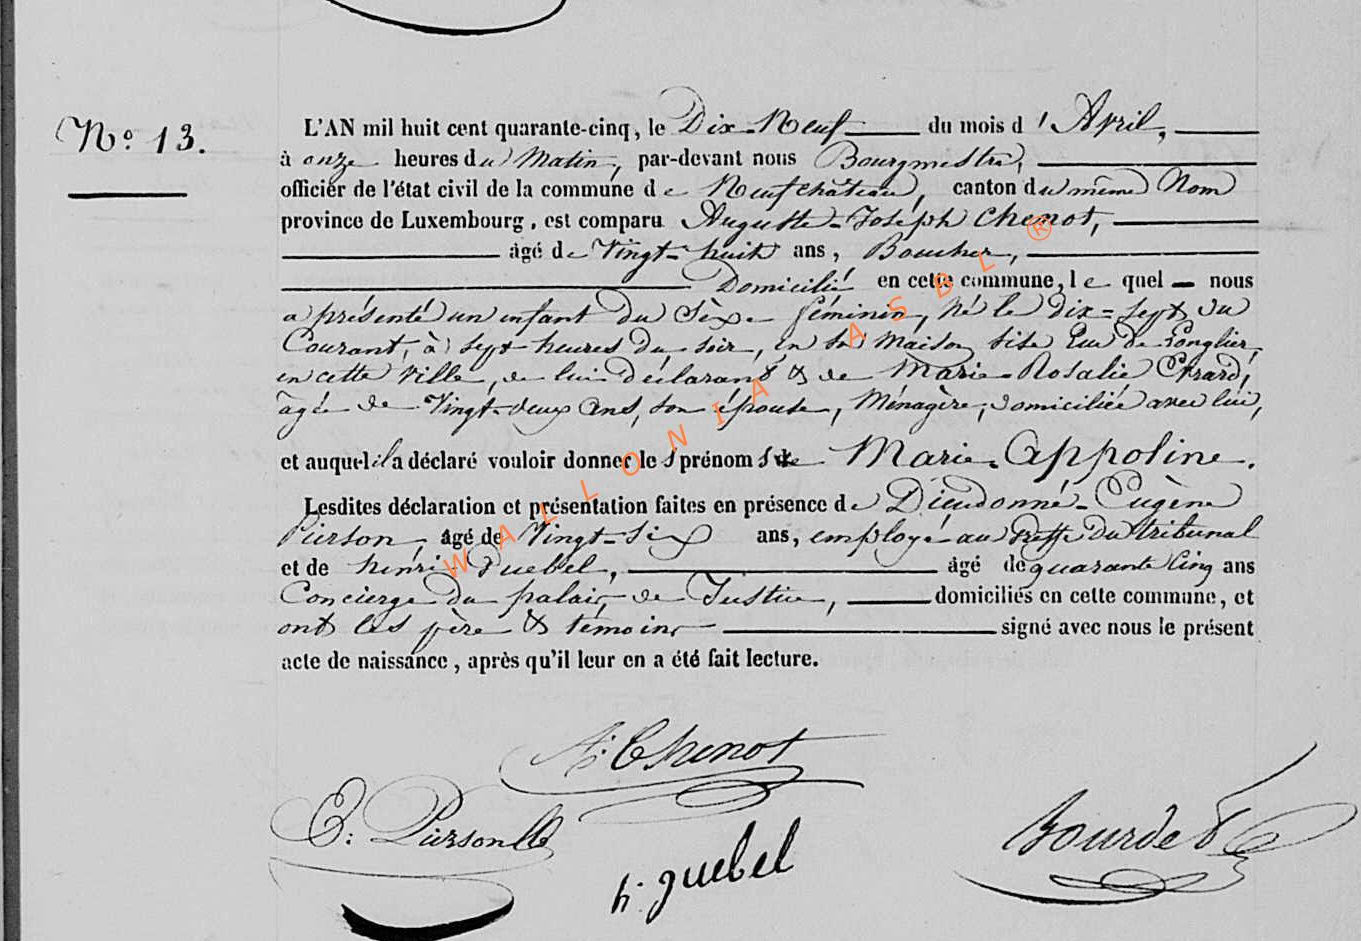 N.º 13.
L'AN mil huit cent quarante-cinq, le Dix-Neuf du mois d'Avril,
à onze heures du Matin, par-devant nous Bourgmestre,
officier de l'état civil de la commune de Neufchâteau, canton du même Nom
province de Luxembourg, est comparu Auguste-Joseph Chenot,
âgé de Vingt-huit ans, Boucher,
Domicilié en cette commune, le quel nous
a présenté un enfant du sèxe féminin, Né le dix-sept du
Courant, à sept heures du soir, en sa Maison sise rue de Longlier,
en cette Ville, de lui déclarant & de Marie-Rosalie Evrard,
âgée de Vingt-deux ans, son épouse, Ménagère, domiciliée avec lui,
et auquel il a déclaré vouloir donner les prénoms de Marie-Appoline.
Lesdites déclaration et présentation faites en présence de Dieudonné-Eugène
Pierson, âgé de Vingt-six ans, employé au Greffe du tribunal
et de henri Guebel, âgé de quarante cinq ans
Concierge du palais de Justice, domiciliés en cette commune, et
ont les père & témoins signé avec nous le présent
acte de naissance, après qu'il leur en a été fait lecture.
A: Chenot
E: Pierson
h: guebel
WALLONIA ASBL ®